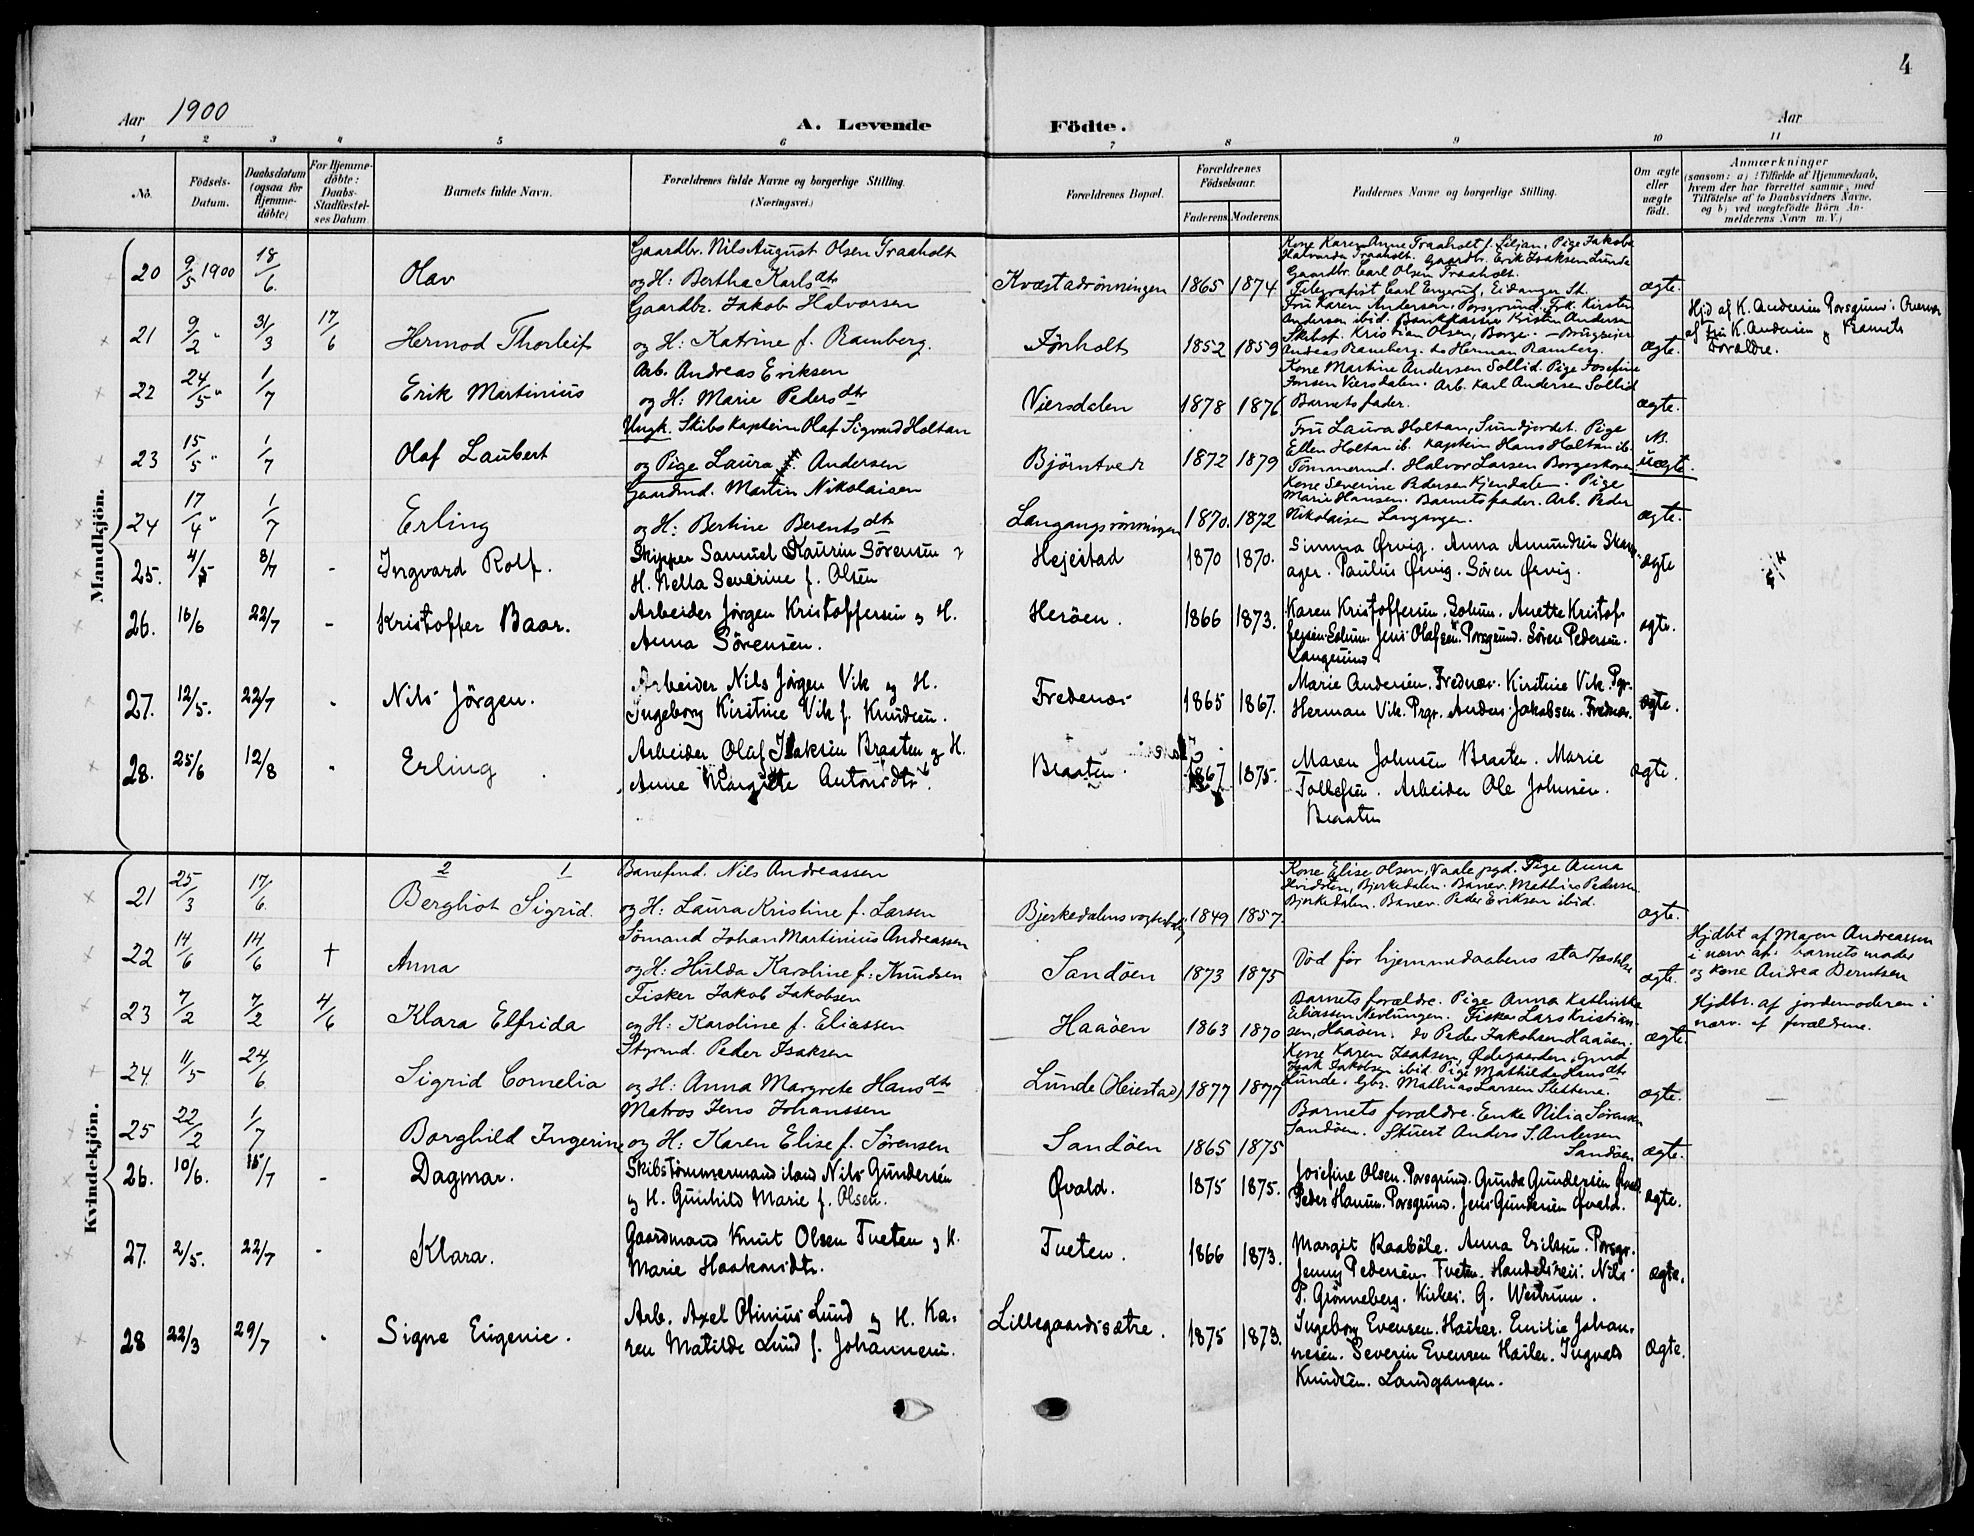 4
Aar 1900
A. Levende
Födte.
Aar
1 2 3 4 5 6 7 8 9 10 11
No.
Födsels-
Datum.
Daabsdatum
(ogsaa for
Hjemme-
döbte)
For Hjemme-
döbte:
Daabs-
Stadfæstel-
ses Datum
Barnets fulde Navn.
Forældrenes fulde Navne og borgerlige Stilling.
(Næringsvei.)
Forældrenes Bopæl.
Forældrenes
Födselsaar.
Faderens. Moderens.
Faddernes Navne og borgerlige Stilling.
Om ægte
eller
uægte
födt.
Anmærkninger
(saasom: a) i Tilfælde af Hjemmedaab,
hvem der har forrettet samme, med
Tilföielse af to Daabsvidners Navne.
og b) ved uægtefödte Börn An-
melderens Navn m. V.)
Mandkjön.
20 9/5 1900 18/6 Olav
Gaardbr. Nils August Olsen Traaholt
og H: Bertha Karlsdtr
Kvæstadrønningen 1865 1874
Kone Karen Anne Traaholt f. Liljan, Pige Jakobe
Halvorda Traaholt. Gaardbr. Erik Isaksen Lunde
Gaardbr. Carl Olsen Traaholt.
ægte.
21 9/2 " 31/3 17/6 Hermod Thorleif
Gaardbr. Jakob Halvorsen
og H: Katrine f. Ramberg.
Fønholt 1852 1859
Telegrafist Carl Engerut, Eidanger St.
Fru Karen Andersen, Porsgrund, Frk. Kirsten
Andersen ibid. Bankkasser Kristen Andersen
Skibsf. Kristian Olsen, Borge. – Brugseier
Andreas Ramberg. to Herman Ramberg.
ægte.
Hjd af K. Andersen Porsgrund i Overvær
af fru K. Andersen og Barnets
Forældre.
22 24/5 " 1/7 Erik Martinius
Arb. Andreas Eriksen
og H: Marie Pedersdtr
Viersdalen 1878 1876
Kone Martine Andersen Sollid. Pige Josefine
Jonsen Viersdalen. Arb. Karl Andersen Sollid
Barnets fader.
ægte.
23 15/5 " 1/7 Olaf Laubert
Ungk. Skibskaptein Olaf Sigvard Holtan
og Pige Laura Andersen
Bjørntvedt 1872 1879
Fru Laura Holtan, Sundjordet. Pige
Ellen Holtan ib. Kaptein Hans Holtan ib.
Tømmermd. Halvor Larsen Borgeskoven
N.
uægte.
24 17/4 " 1/7 Erling
Gaardmd. Martin Nikolaisen
og H: Bertine Berentsdtr
Langangsrønningen 1870. 1872
Kone Severine Pedersen Kjendalen. Pige
Marie Hansen. Barnets fader. Arb. Peder
Nikolaisen Langangen.
ægte.
25. 4/5 8/7 - Ingvard Rolf.
Skipper Samuel Kaurin Sörensen &
H. Nella Severine f. Olsen
Hejestad 1870 1870.
Simma Ørvig. Anna Amundsen Skav-
ager. Paulus Ørvig. Sören Ørvig.
ægte
26. 16/6 22/7 - Kristoffer Baar.
Arbeider Jörgen Kristoffersen og H.
Anna Sörensen.
Heröen. 1866 1873.
Karen Kristoffersen. Solum. Anette Kristof-
fersen Solum. Jens Olafsen Porsgrund. Sören Pedersen.
Langesund
ægte.
27. 12/5. 22/7 - Nils Jörgen.
Arbeider Nils Jörgen Vik og H.
Ingeborg Kirstine Vik f. Knudsen.
Fredenæs 1865 1867.
Marie Andersen, Frednæs. Kirstine Vik. Pgr.
Herman Vik. Prgr. Anders Jakobsen. Frednæs.
ægte.
28. 25/6 12/8 - Erling
Arbeider Olaf Isaksen Braaten og H.
Anne Margrete Antonsdtr.
Braaten. 1867 1875.
Maren Johnsen Braaten. Marie
Tollefsen. Arbeider Ole Johnsen.
Braaten
ægte.
Kvindekjön.
21 25/3 17/6 2 1
Berghot Sigrid.
Banefmd. Nils Andreassen
og H: Laura Kristine f. Larsen
Bjerkedalens vogterbolig 1849 1857.
Kone Elise Olsen, Vaale pgd. Pige Anna
Hvidsten, Bjerkedalen. Banev. Mathias Pedersen
Bjerkedalen. Banev. Peder Eriksen ibid.
ægte.
22 14/6 14/6 † Anna
Sömand Johan Martinius Andreassen
og H: Hulda Karoline f: Knudsen
Sandöen 1873 1875
Död för hjemmedaabens stadfæstelse
ægte.
Hjdbt af Maren Andreassen
i nærv. af: barnets moder
og kone Andrea Berntsen
23 7/2 7/2 4/6 Klara Elfrida
Fisker Jakob Jakobsen
og H: Karoline f. Eliassen
Haaöen 1863 1870
Barnets forældre. Pige Anna Kathinka
Eliassen Nevlungen. Fisker Lars Kristian-
sen, Haaöen. do Peder Jakobsen Haaöen.
ægte.
Hjdbt. af jordemoderen i
nærv. af forældrene.
24. 11/5 24/6 Sigrid Cornelia
Styrmd. Peder Isaksen
og H: Anna Margrete Hansdtr
Lunde (Heiestad) 1877 1877
Kone Karen Isaksen, Ødegaarden. gmd
Isak Jakobsen ibid. Pige Mathilde Hansdtr
Lunde. Gbr. Mathias Larsen Slettene.
ægte.
25 22/2 1/7 Borghild Ingerine
Matros Jens Johanssen
og H: Karen Elise f. Sørensen
Sandöen 1865 1875
Barnets forældre. Enke Nilia Sørensen
Sandöen. Stuert Anders S. Andersen
Sandöen
ægte.
26. 10/6. 15/7 - Dagmar.
Skibstömmermand iland Nils Gundersen
og H. Gunhild Marie f. Olsen.
Øvald. 1875 1875.
Josefine Olsen. Porsgrund. Gunda Gundersen Øvald
Peder Hansen. Porsgrund. Jens Gundersen Øvald.
ægte.
27. 2/5. 22/7 - Klara.
Gaardmand Knut Olsen Tveten og H.
Marie Haakonsdtr.
Tveten. 1866 1873.
Margit Raaböle. Anna Eriksen. Porsgr.
Jenny Pedersen. Tveten. Handelsreis. Nils
P. Grönneberg. Kirkes. G. Westrum.
ægte.
28 22/3 29/7 - Signe Eugenie.
Arb. Axel Olinius Lund og H. Ka-
ren Matilde Lund f. Johannesen.
Lillegaardssætre. 1875 1873.
Ingeborg Evensen. Hasler. Emilie Johan-
nesen. Severin Evensen Hasler. Ingvald
Knudsen. Landgangen.
ægte.